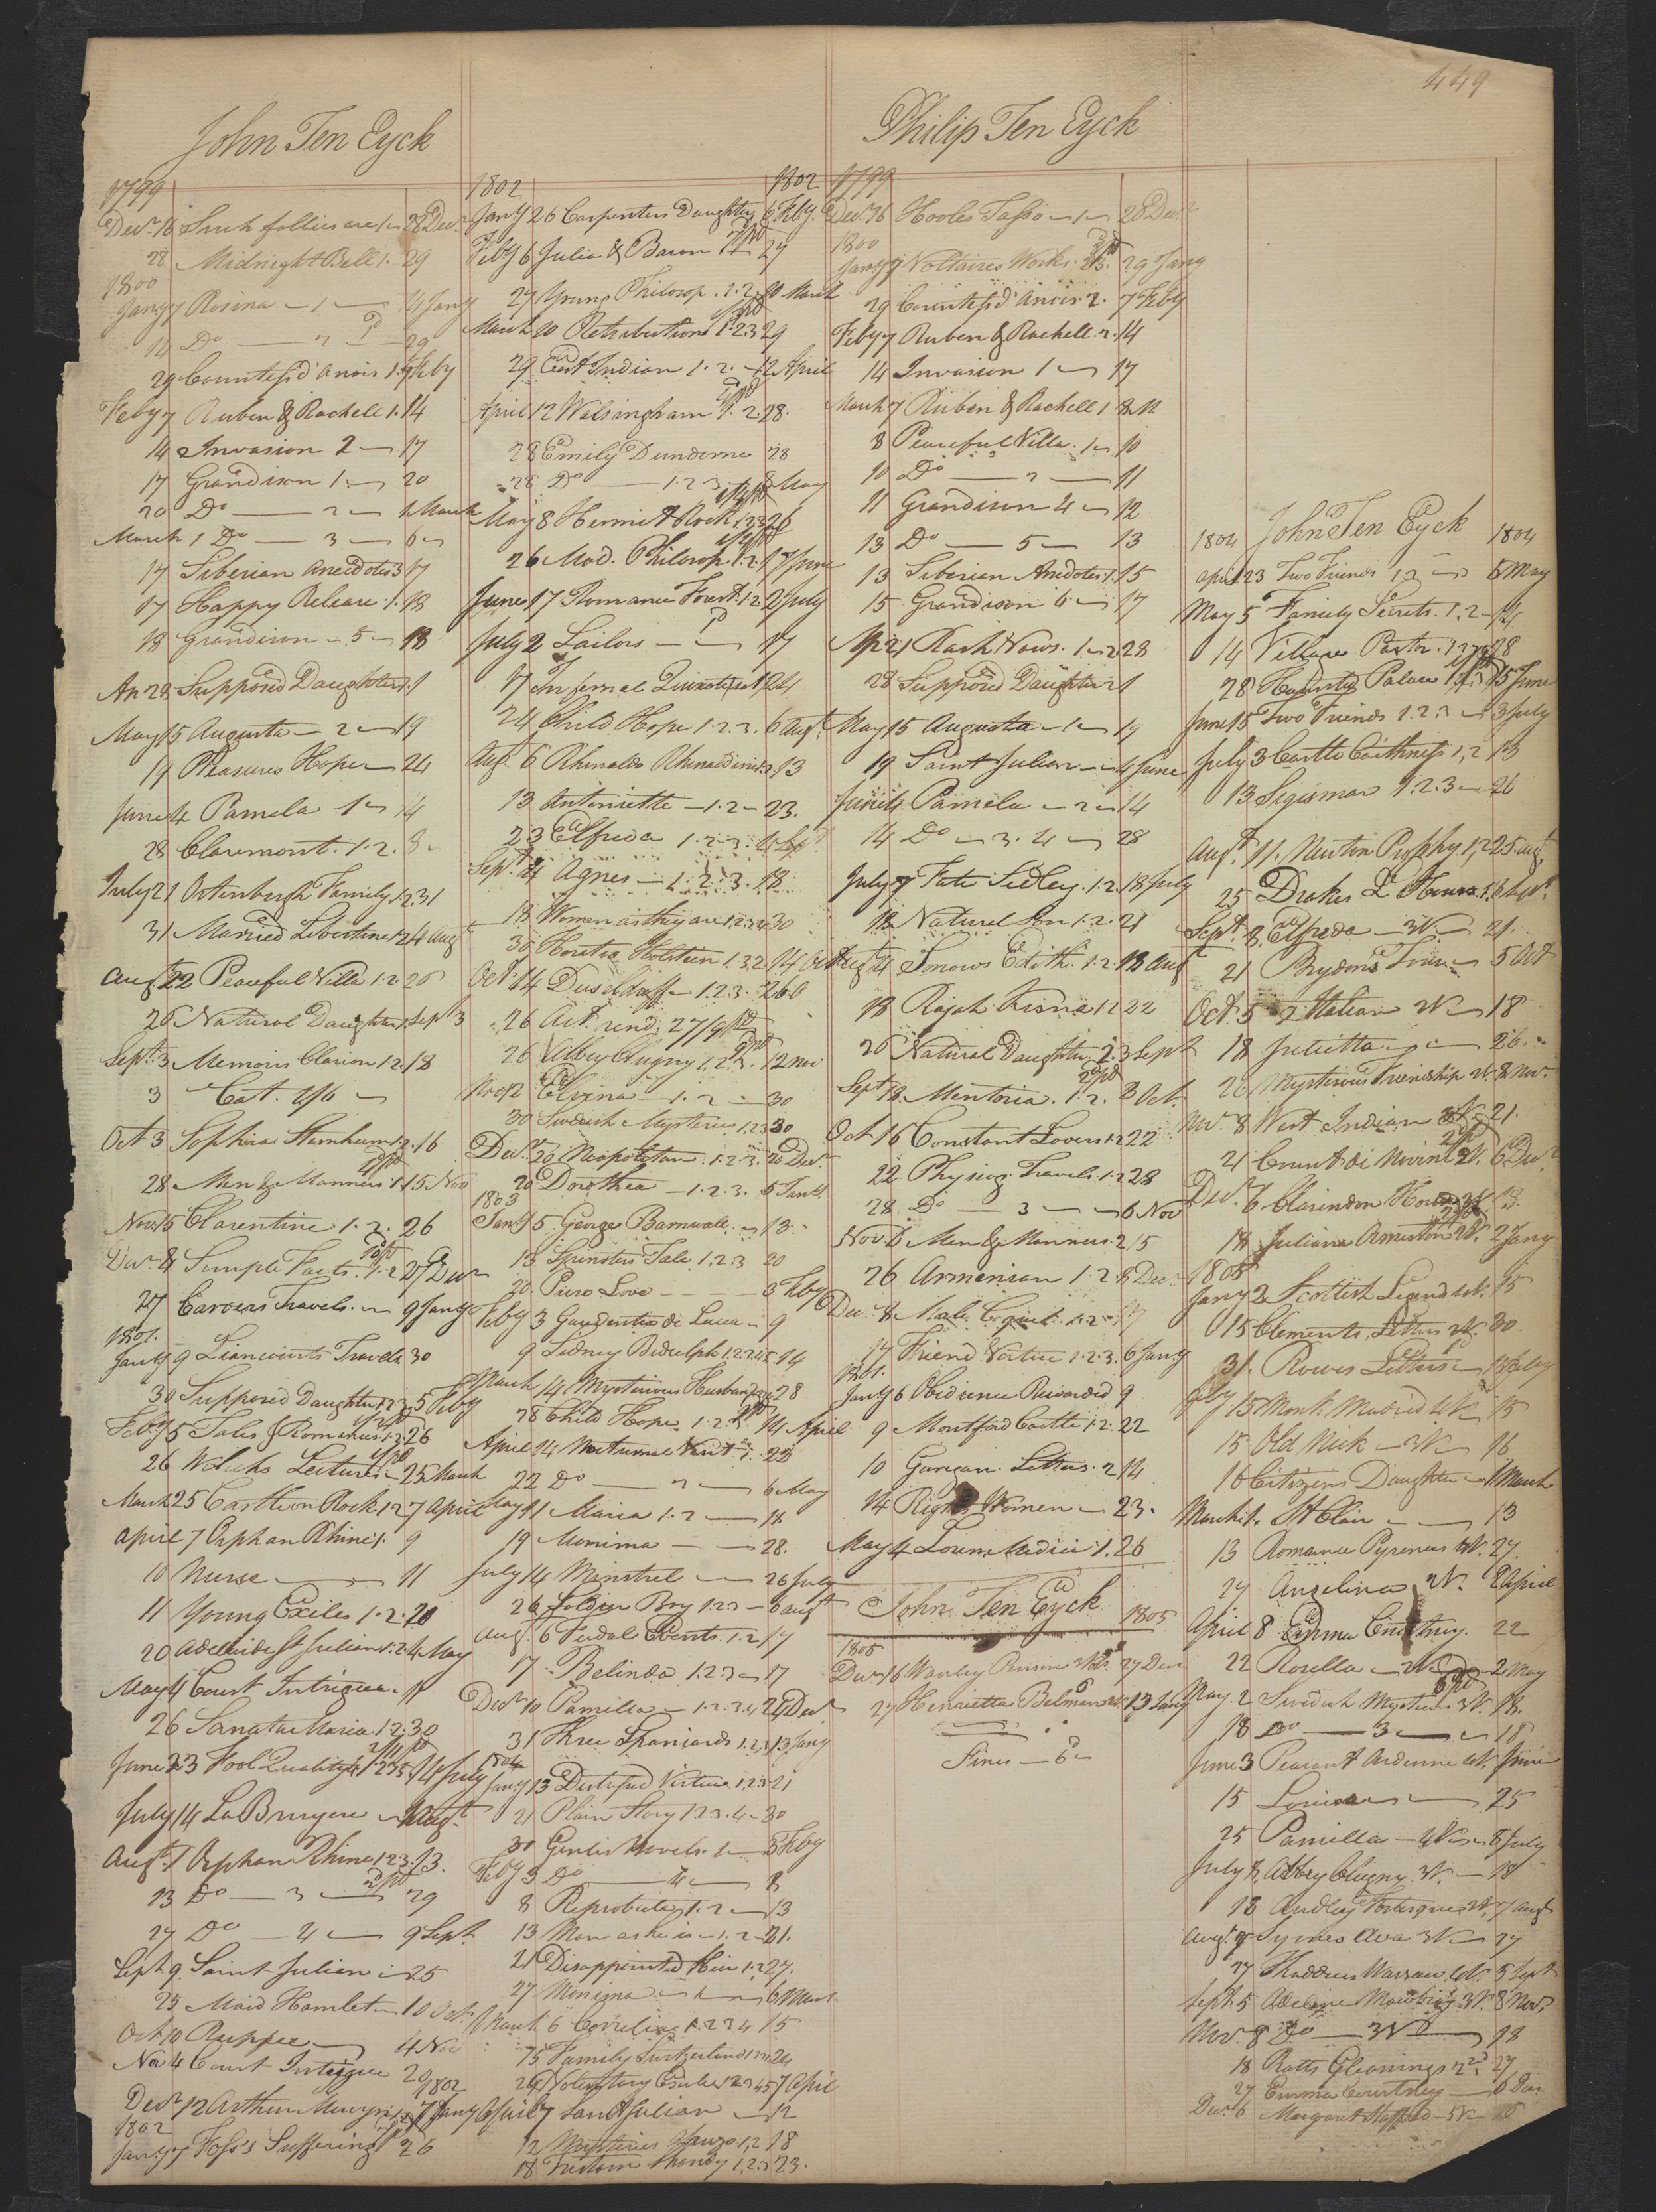 449
John Ten Eyck
1799
Decr 16 Such follies are 1 28 Decr
28 Midnight Bell 1. 29
1800
Jany 7 Rosina — 1 — 14 Jany
14 Do — 2 — 29
29 Countess d'anois 1. 7 Feby
Feby 7 Ruben & Rachell 1. 14
14 Invasion 2 — 17
17 Grandison 1 — 20
20 Do — 2 — 1 March
March 1 Do — 3 — 6
17 Siberian Anecdotes 3 17
17 Happy Release 1. 18
18 Grandison — 5 — 18
28 Supposed Daughter 1. 1
May 15 Augusta — 2 — 19
19 Pleasures Hope — 24
June 4 Pamela 1 — 14
28 Claremont. 1.2. 3
July 21 Ortenbergh Family 1.2 31
31 Married Libertine 1.2 4 Aug
Augt 22 Peaceful Villa 1.2 26
26 Natural Daughter 1. Sept 3
Sept. 3 Memoirs Clarion 1.2. 18
3 Cat. 2/6
Oct 3 Sophia Sternheim 1.2. 16
28 Men & Manners 1. 15 Nov
Nov. 15 Clarentine 1.2. 26
Decr 8 Simple Facts. 1.2 27 Decr
27 Carvers Travels. — 9 Jany
1801.
Jany 9 Liancourts Travels 30
30 Supposed Daughter 1.2.3. 5 Feby
Feby 5 Tales & Romances 1.2 26
26 Lectures — 25 March
March 25 Castle on Rock 1.2 7 April
April 7 Orphan Rhine 1. 9
10 Nurse — 11
11 Young Exiles 1.2. 20
20 Adelaide St Julian 1.2. 4 May
May 4 Court Intrigue. 11
26 Santa Maria 1.2. 30
June 23 Fool Quality 14 July
July 14 La Bruyere — Augt
Augt 1 Orphan Rhine 1.2.3. 13.
13 Do — 3 — 29
27 Do — 4 — 9 Sept.
Sept 9 Saint Julien — 25
25 Maid Hamlet — 10 Oct
Oct. 10 Ruppee — 4 Nov
Nov 4 Court Intrigue 20
1802
Decr 12 Arthur Mervyn 7 Jany
1802
Jany 7 Foss's Suffering 26
1802 1802
Jany 26 Carpenters Daughter 6 Feby.
Feby 6 Julia & Baron 27
27 Young Philosop. 1.2. 10 March
March 10 Retribution 1.2.3 29
29 East Indian 1.2. — 12 April
April 12 Walsingham 1.2. 28.
28 Emily Dundorne 28
28 Do — 1.2.3 — 8 May
May 8 Hermit Rock 1.2.3 26
26 Mod. Philosop. 1.2. 17 June
June 17 Romance Forest. 1.2 2 July
July 2 Sailors — 17
17 Infernal Quixote 1 24
24 Child Hope 1.2.3. 6 Augt
Augt. 6 Rhinaldo Rhinaldini 13
13 Antoinette — 1.2 — 23.
23 Elfreda 1.2.3. 4 Sep.
Sept. 4 Agnes — 1.2.3. 18.
18 Women as they are 1.2.3.4 30
30 Horatio Holstein 1.3.2 14 Oct
Oct. 14 Dusseldorff — 1.2.3. 26
26 Act. rend. 27/9
26 Abbey Clugny 1.2.3. 12 Nov
Nov 12 Elvina — 1.2 — 30
30 Swedish Mysteries 1.2.3 30
Decr. 20 Neapolitan. 1.2.3. 20 Decr.
20 Dorothea — 1.2.3. 5 Jany.
1803
Jany 5 George Barnwale. 13.
13 Spinsters Tale 1.2.3 20
20 Pure Love — 3 Feby
Feby 3 Gaudentia di Lucca — 9
9 Sidney Bidulph 1.2.3.4.5 14
March 14 Mysterious Husband 28
28 Child Hope 1.2.3 14 April
April 14 Nocturnal Visit 1. 22
22 Do — 2 — 6 May
May 11 Maria 1.2 — 18
19 Monima — 28.
July 14 Minstrel — 26 July
26 Soldier Boy 1.2.3 — 6 Augt
Aug. 6 Fudal Events. 1.2 17
17 Belinda 1.2.3 — 17
Decr 10 Pamilla — 1.2.3.4 24 Decr
31 Three Spaniards 1.2.3 13 Jany
1804
Jany 13 Distressed Virtue 1.2.3 21
21 Plain Story 1.2.3.4 — 30
30 Genlis Novels. 1 — 3 Feby
Feby 3 Do — 4 — 8
8 Reprobate 1.2 — 13
13 Man as he is — 1.2 — 21.
21 Disappointed Heir 1.2 27.
27 Monima — 1 — 6 March
March 6 Corelia 1.2.3.4 15
15 Family Switzerland 24
24 Voluntary Exile 1.2.3.4.5 7 April
April 7 Saint Julian — 12
12 Mysteries 1.2 18
18 Tristram Shandy 1.2.3 23.
Philip Ten Eyck
1799
Decr. 16 Hooles Tasso — 1 — 28 Decr
1800
Jany 7 Voltaires Works. 29 Jany
29 Countess d'anois 2. 7 Feby
Feby 7 Ruben & Rachell. 2. 14
14 Invasion 1 — 17
March 7 Ruben & Rachell 1 8 M
8 Peaceful Villa. 1 — 10
10 Do — 2 — 11
11 Grandison 4 — 12
13 Do — 5 — 13
13 Siberian Anecdotes 1. 15
15 Grandison 6 — 17
Ap 21 Rash Vows. 1 — 2 28
28 Supposed Daughter 2 1
May 15 Augusta — 1 — 19
19 Saint Julien — 4 June
June 4 Pamela — 2 — 14
14 Do — 3.4 — 28
July 7 Fate Sedley. 1.2. 18 July
18 Natural Son 1.2. 21
Augt 4 Sorrows Edith. 1.2. 18 Aug
18 Rajah Kisna 1.2 22
26 Natural Daughter 2. 3 Sept
Sept 18. Mentoria. 1.2. 3 Oct.
Oct 16 Constant Lovers 1.2 22
22 Physiog. Travels 1.2 28
28 Do — 3 — 6 Nov
Nov. 6 Men & Manners. 2 15
26 Armenian 1.2. 8 Dec.
Decr 8 Male Coquet. 1.2 — 17
17 Friend Virtue 1.2.3. 6 Jany
1801.
Jany 6 Obidience Rewarded 9
9 Montford Castle 1.2. 22
10 Gargan. Letters. 2 14
14 Rights Women — 23.
May 4 Loren. Medici 1. 26
John Ten Eyck
1805
1805
Decr. 16 Wanley Penson 27 Decr
27 Henrietta Belmann 13 Jany
Fines — 6
John Ten Eyck
1804 1804
April 23 Two Friends 1.2 — 5 May
May 5 Family Secrets. 1.2 — 14
14 Village Pastor. 28
28 Haunted Palace 15 June
June 15 Two Friends 1.2.3 — 3 July
July 3 Castle Caithness 1,2 13
13 Sigismar 1.2.3 — 26
Augt. 11. Newton Prophy. 1,2 25. Aug
25 Drakes L. Hours 1. 8 Sept.
Sept. 8 Elfreda — 3V. — 21.
21 Brydon's Tour. — 5 Oct
Oct. 5 Italian 2V — 18
18 Julietta — 26.
26 Mysterious Friendship 2V. 8 Nov.
Nov. 8 West Indian 21.
21 Count di Novini 2V. 6 Decr.
Decr. 6 Clarendon 18.
18 Juliana Ormeston 2V. 2 Jany
1805
Jany 2 Scottish Legend 15
15 Clements Letters 2V. 30
31. Rowes Letters — 15 Feby
Feby 15 Monk Madrid 15
15 Old Nick — 3V — 16
16 Citizens Daughter — 1 March
March 1. St Clair — 13
13 Romance Pyrenees 4V. 27
27 Angelina 2V. 8 April
April 8 Emma Courtney. 22
22 Rosella — 2V — 2 May
May. 2 Swedish Mysteries 3V. 18.
18 Do — 3 — 18
June 3 Peasant Ardenne June
15 Louisa — 25
25 Pamilla — 4V — 8 July
July 8. Abbey Clugny 3V. — 18
18 Audley Fortesque 2V. 7 Augt
Augt. 7 3V — 27
27 Thaddeus Warsaw 4V. 5 Sept
Sept. 5 Adeline Mowbray 3V. 8 Nov.
Nov. 8 Do — 3V — 18
18 Pratts Gleanings 27
27 Emma Courtney — 6 Decr
Decr. 6 Margaret 16